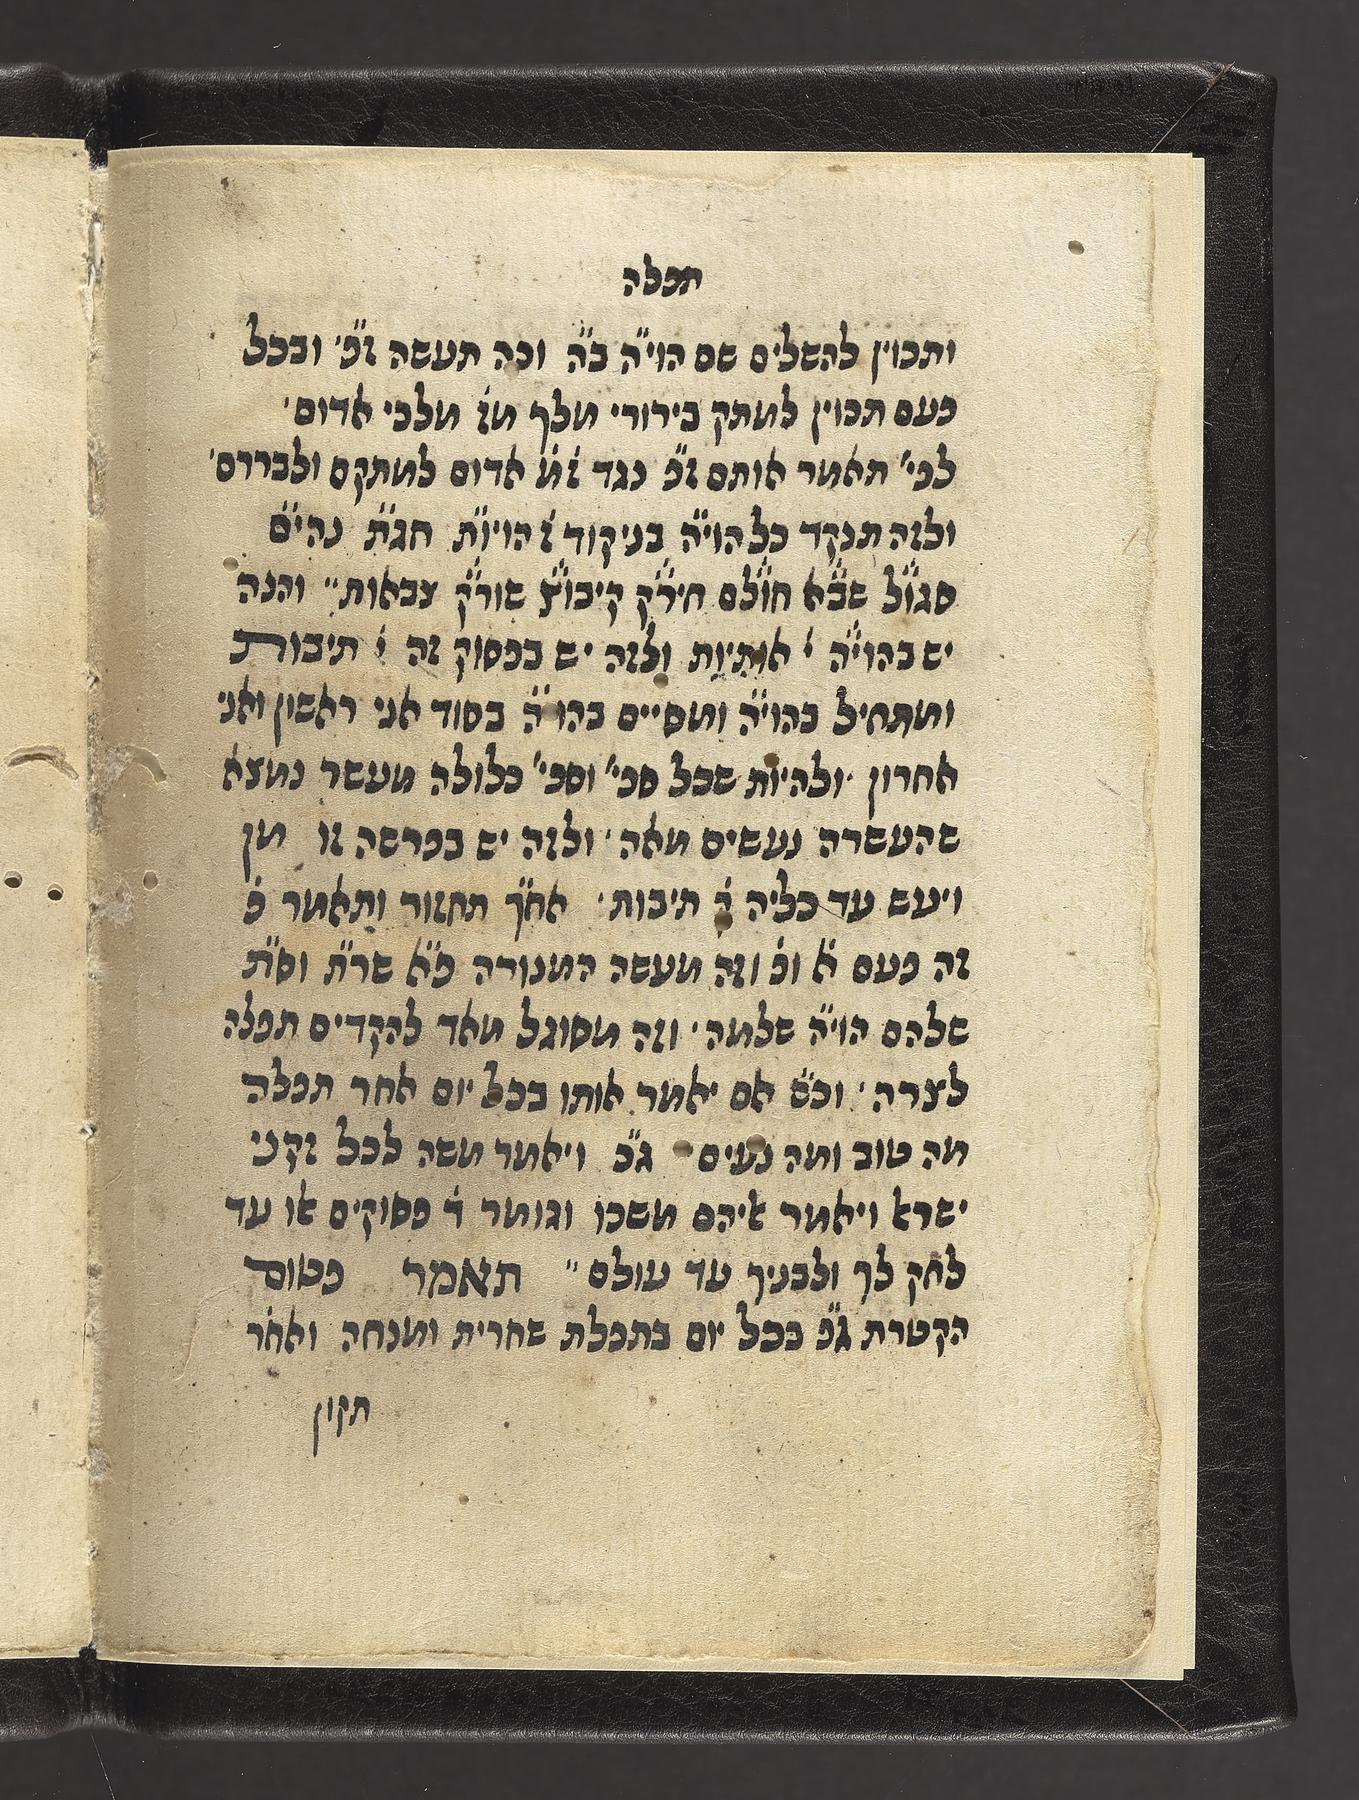 תפלה
ותכוין להשלים שם הוי״ה ב״ה וכה תעשה ז״פ׳ ובכל
פעם תכוין למתק בירורי מלך מז׳ מלכי אדום׳
לפי׳ תאמר אותם ז״פ כנגד ז״מ אדום למתקם ולבררם׳
ולזה תנקד כל הוי״ה בניקוד ז׳ הויו״ת חג״ת נהי״ם
סגו״ל שב״א חול״ם חיר״ק קיבו״ץ שור״ק צבאות״ והנה
יש בהוי״ה י׳ אותיות ולזה יש בפסוק זה י׳ תיבות
ומתחיל בהוי״ה ומסיים בהוי״ה בסוד אני ראשון ואני
אחרון ׳ ולהיות שכל ספי׳ וספי׳ כלולה מעשר נמצא
שהעשרה נעשים מאה׳ ולזה יש בפרשה זו מן
ויעש עד כליה ק׳ תיבות׳ אח״ך תחזור ותאמר פ׳
זה פעם א׳ ופ׳ וזה מעשה המנורה פ״א שר״ת וס״ת
שלהם הוי״ה שלמה׳ וזה מסוגל מאד להקדים תפלה
לצרה׳ וכ״ש אם יאמר אותו בכל יום אחר תפלה
מה טוב ומה נעים ג״כ ויאמר משה לכל זקני
ישראל ויאמר אליהם משכו וגומר ד׳ פסוקים או עד
לחק לך ולבניך עד עולם״ תאמר פטום
הקטרת ג״פ בכל יום בתפלת שחרית ומנחה ואח״ר
תקון